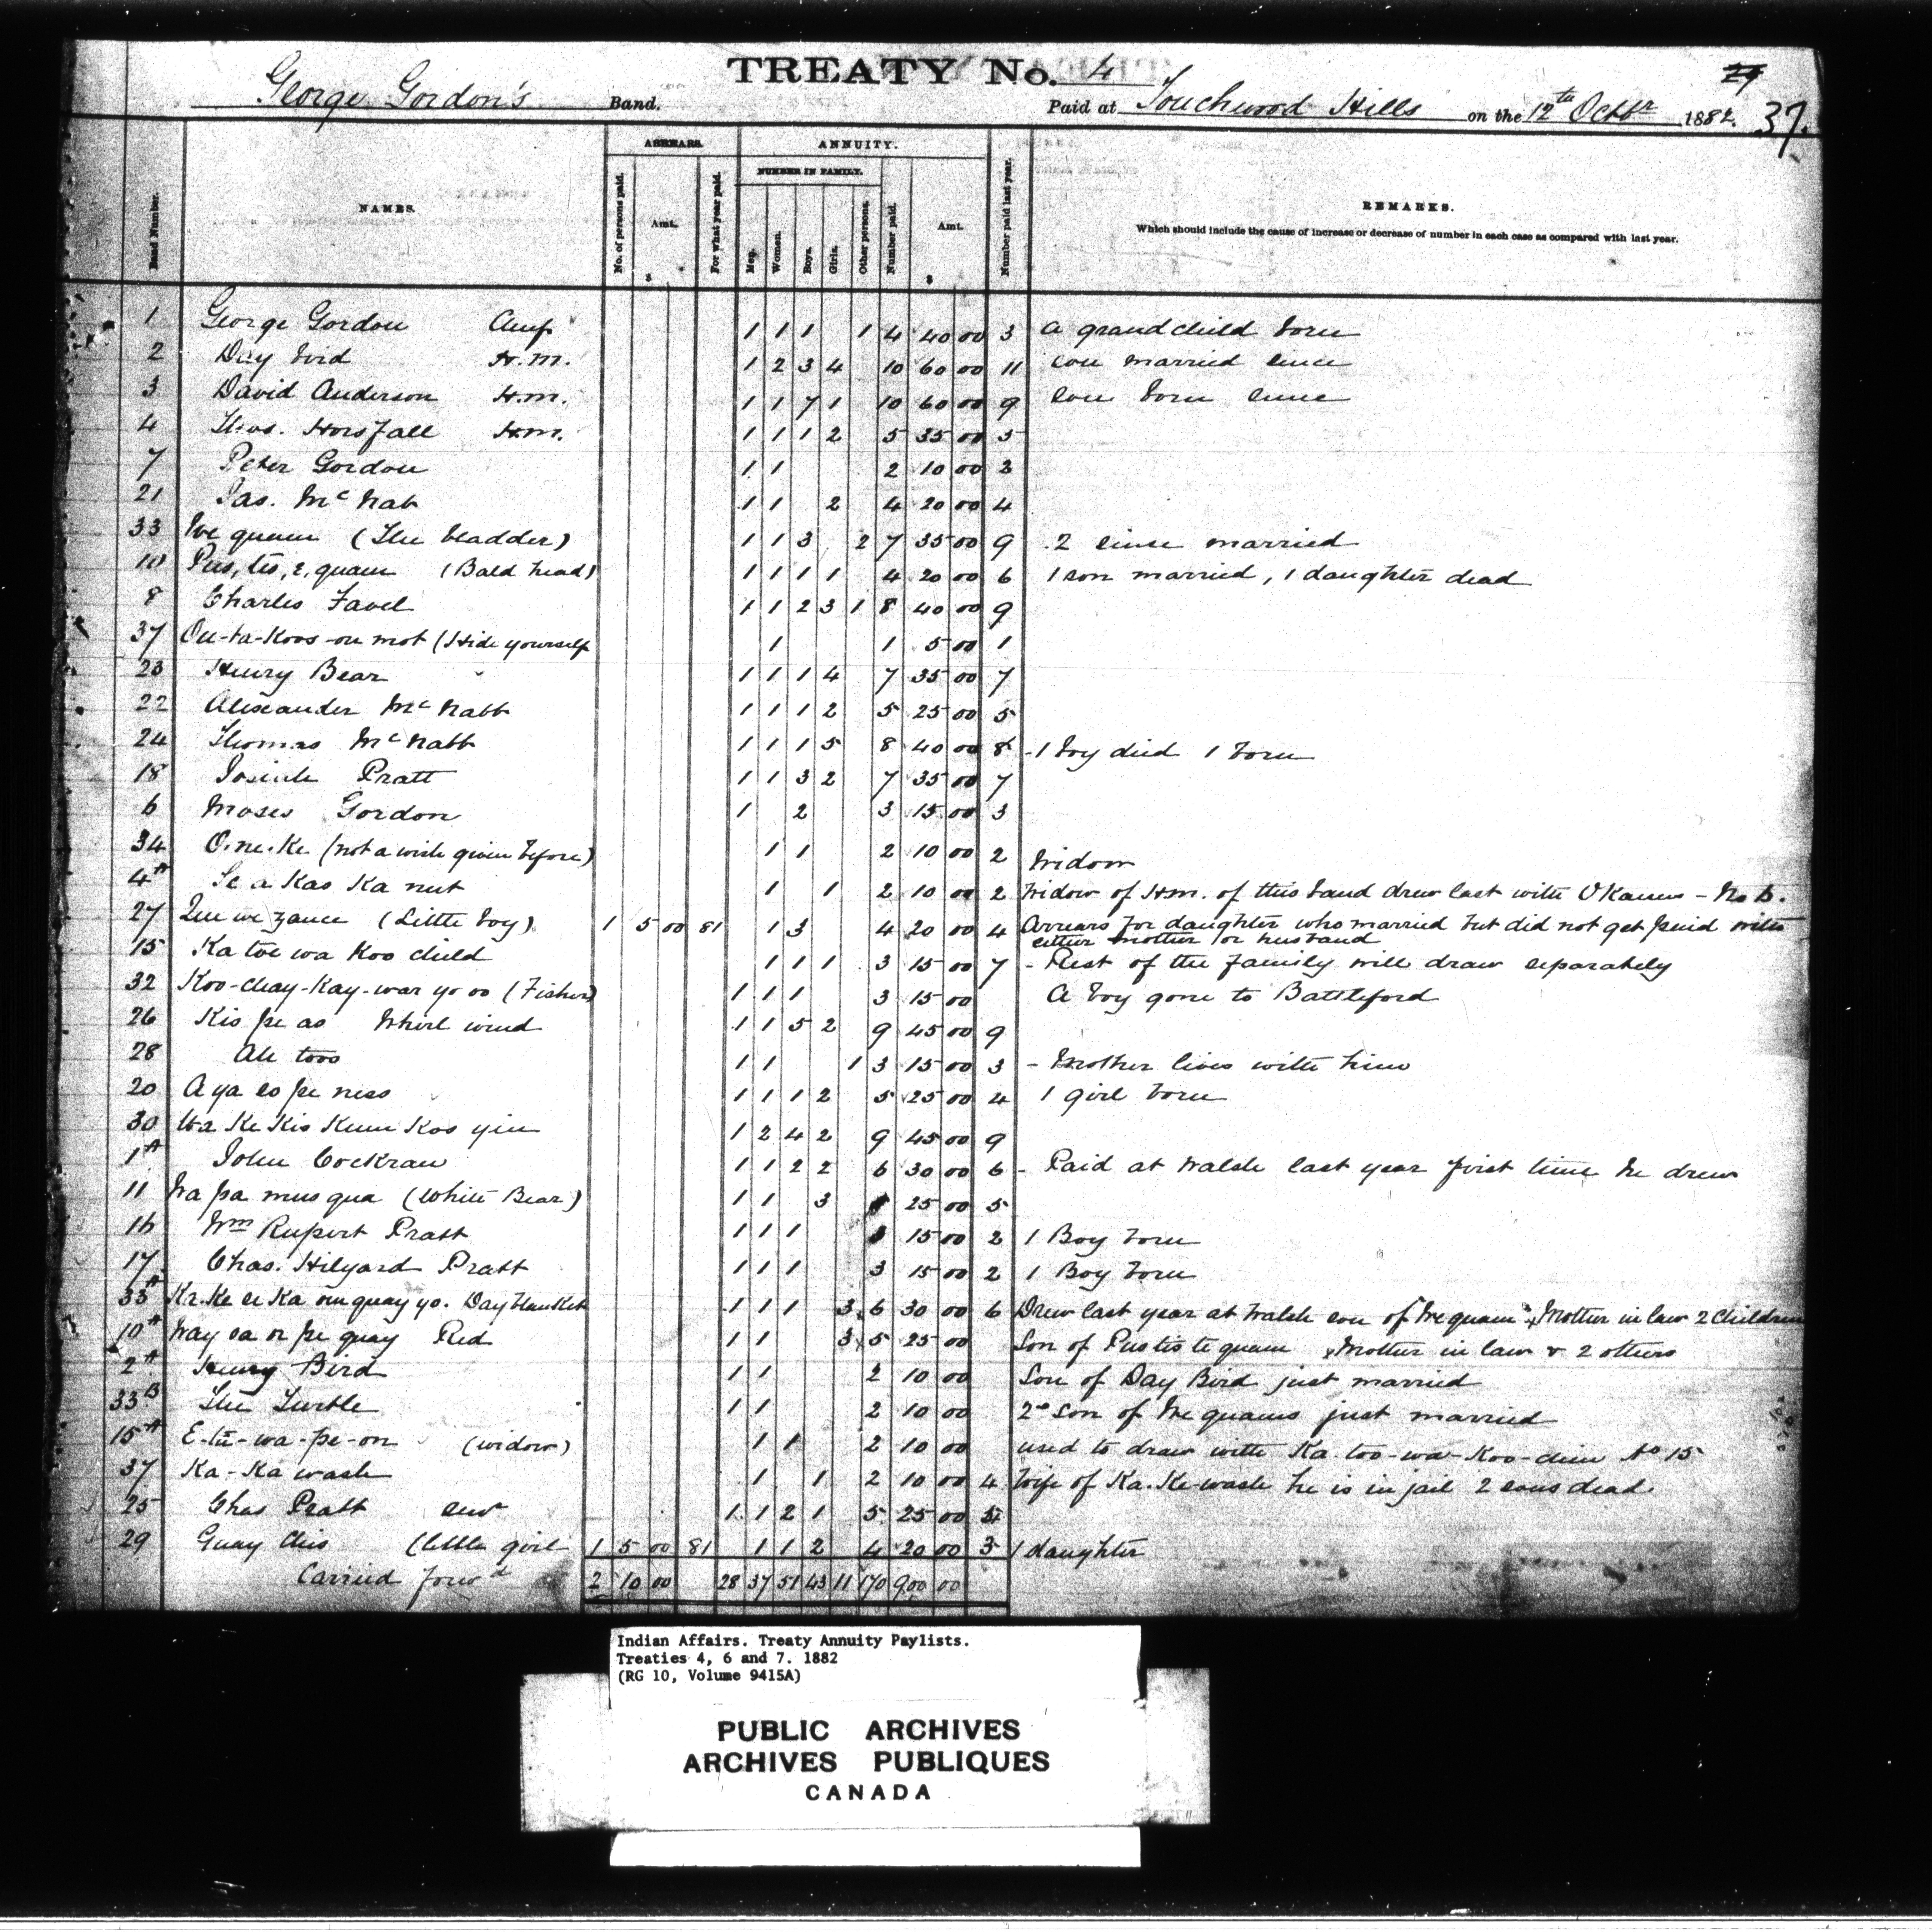 TREATY No. 4
29
George Gordon's Band.
Paid at Touchwood Hills on the 12th Octbr 1882. 37.
Band Number.
NAMES.
ARREARS.
No. of persons paid.
Amt.
$
For what year paid.
ANNUITY.
NUMBER IN FAMILY.
Men.
Women.
Boys.
Girls.
Other persons.
Number paid.
Amt.
$
Number paid last year.
REMARKS.
Which should include the cause of increase or decrease of number in each case as compared with last year.
1 George Gordon 1 1 1 1 4 40 00 3 a grandchild born
2 Day bird H.M. 1 2 3 4 10 60 00 11 son married since
3 David Anderson H.M. 1 1 7 1 10 60 00 9 son born since
4 Thos. Horsfall H.M. 1 1 1 2 5 35 00 5
7 Peter Gordon 1 1 2 10 00 2
21 Jas. McNab 1 1 2 4 20 00 4
33 We quam (The bladder) 1 1 3 2 7 35 00 9 2 since married
10 Pus, tis, e, quam (Bald head) 1 1 1 1 4 20 00 6 1 son married, 1 daughter dead
8 Charles Favel 1 1 2 3 1 8 40 00 9
37 On-ta-Koos-on mot (Hide yourself 1 1 5 00 1
23 Henry Bear 1 1 1 4 7 35 00 7
22 Alexander McNabb 1 1 1 2 5 25 00 5
24 Thomas McNabb 1 1 1 5 8 40 00 8 - 1 boy died 1 born
18 Josiah Pratt 1 1 3 2 7 35 00 7
6 Moses Gordon 1 2 3 15 00 3
34 O.ne.Ke (not a wish given before) 1 1 2 10 00 2 Widow
4A Se a Kas Ka nut 1 1 2 10 00 2 Widow of H.M. of this band drew last with O'Kanes - No 6.
27 Que we zance (Little boy) 1 5 00 81 1 3 4 20 00 4 Arrears for daughter who married but did not get paid with
either mother or husband
15 Ka toe wa Koo child 1 1 1 3 15 00 7 - Rest of the family will draw separately
32 Koo-chay-Kay-war yo oo (Fisher) 1 1 1 3 15 00 A boy gone to Battleford
26 Kis pe as Whirl wind 1 1 5 2 9 45 00 9
28 Ah toos 1 1 1 3 15 00 3 - Mother lives with him
20 A ya es pe ness 1 1 1 2 5 25 00 4 1 girl born
30 Wa Ke Kis Kum Kos yin 1 2 4 2 9 45 00 9
1A John Cockran 1 1 2 2 6 30 00 6 - Paid at Walsh last year first time he drew
11 Wa pa mus qua (White Bear) 1 1 3 25 00 5
16 Wm Rupert Pratt 1 1 1 15 00 2 1 Boy born
17 Chas. Hilyard Pratt 1 1 1 3 15 00 2 1 Boy born
33A Ka-Ke se Ka om quay yo. Day blanket 1 1 1 3 6 30 00 6 Drew last year at Walsh son of We quam x Mother in law 2 Children
10A Way sa or pe quay Red 1 1 3 x 5 25 00 Son of Pustis te quam x Mother in law & 2 others
2A Henry Bird 1 1 2 10 00 Son of Day Bird just married
33B The Turtle 1 1 2 10 00 2nd Son of We quams just married
15A E-tu-wa-pe-on (widow) 1 1 2 10 00 used to draw with Ka-too-wa-Koo-chin No 15
37 Ka-Ka wash 1 1 2 10 00 4 Wife of Ka.Ke-wash he is in jail 2 sons dead.
25 Chas Pratt senr 1 1 2 1 5 25 00 5
29 Quay Chis (little girl 1 5 00 81 1 1 2 4 20 00 3 1 daughter
Carried forwd 2 10 00 28 37 51 43 11 170 900 00
Indian Affairs. Treaty Annuity Paylists.
Treaties 4, 6 and 7. 1882
(RG 10, Volume 9415A)
PUBLIC ARCHIVES
ARCHIVES PUBLIQUES
CANADA